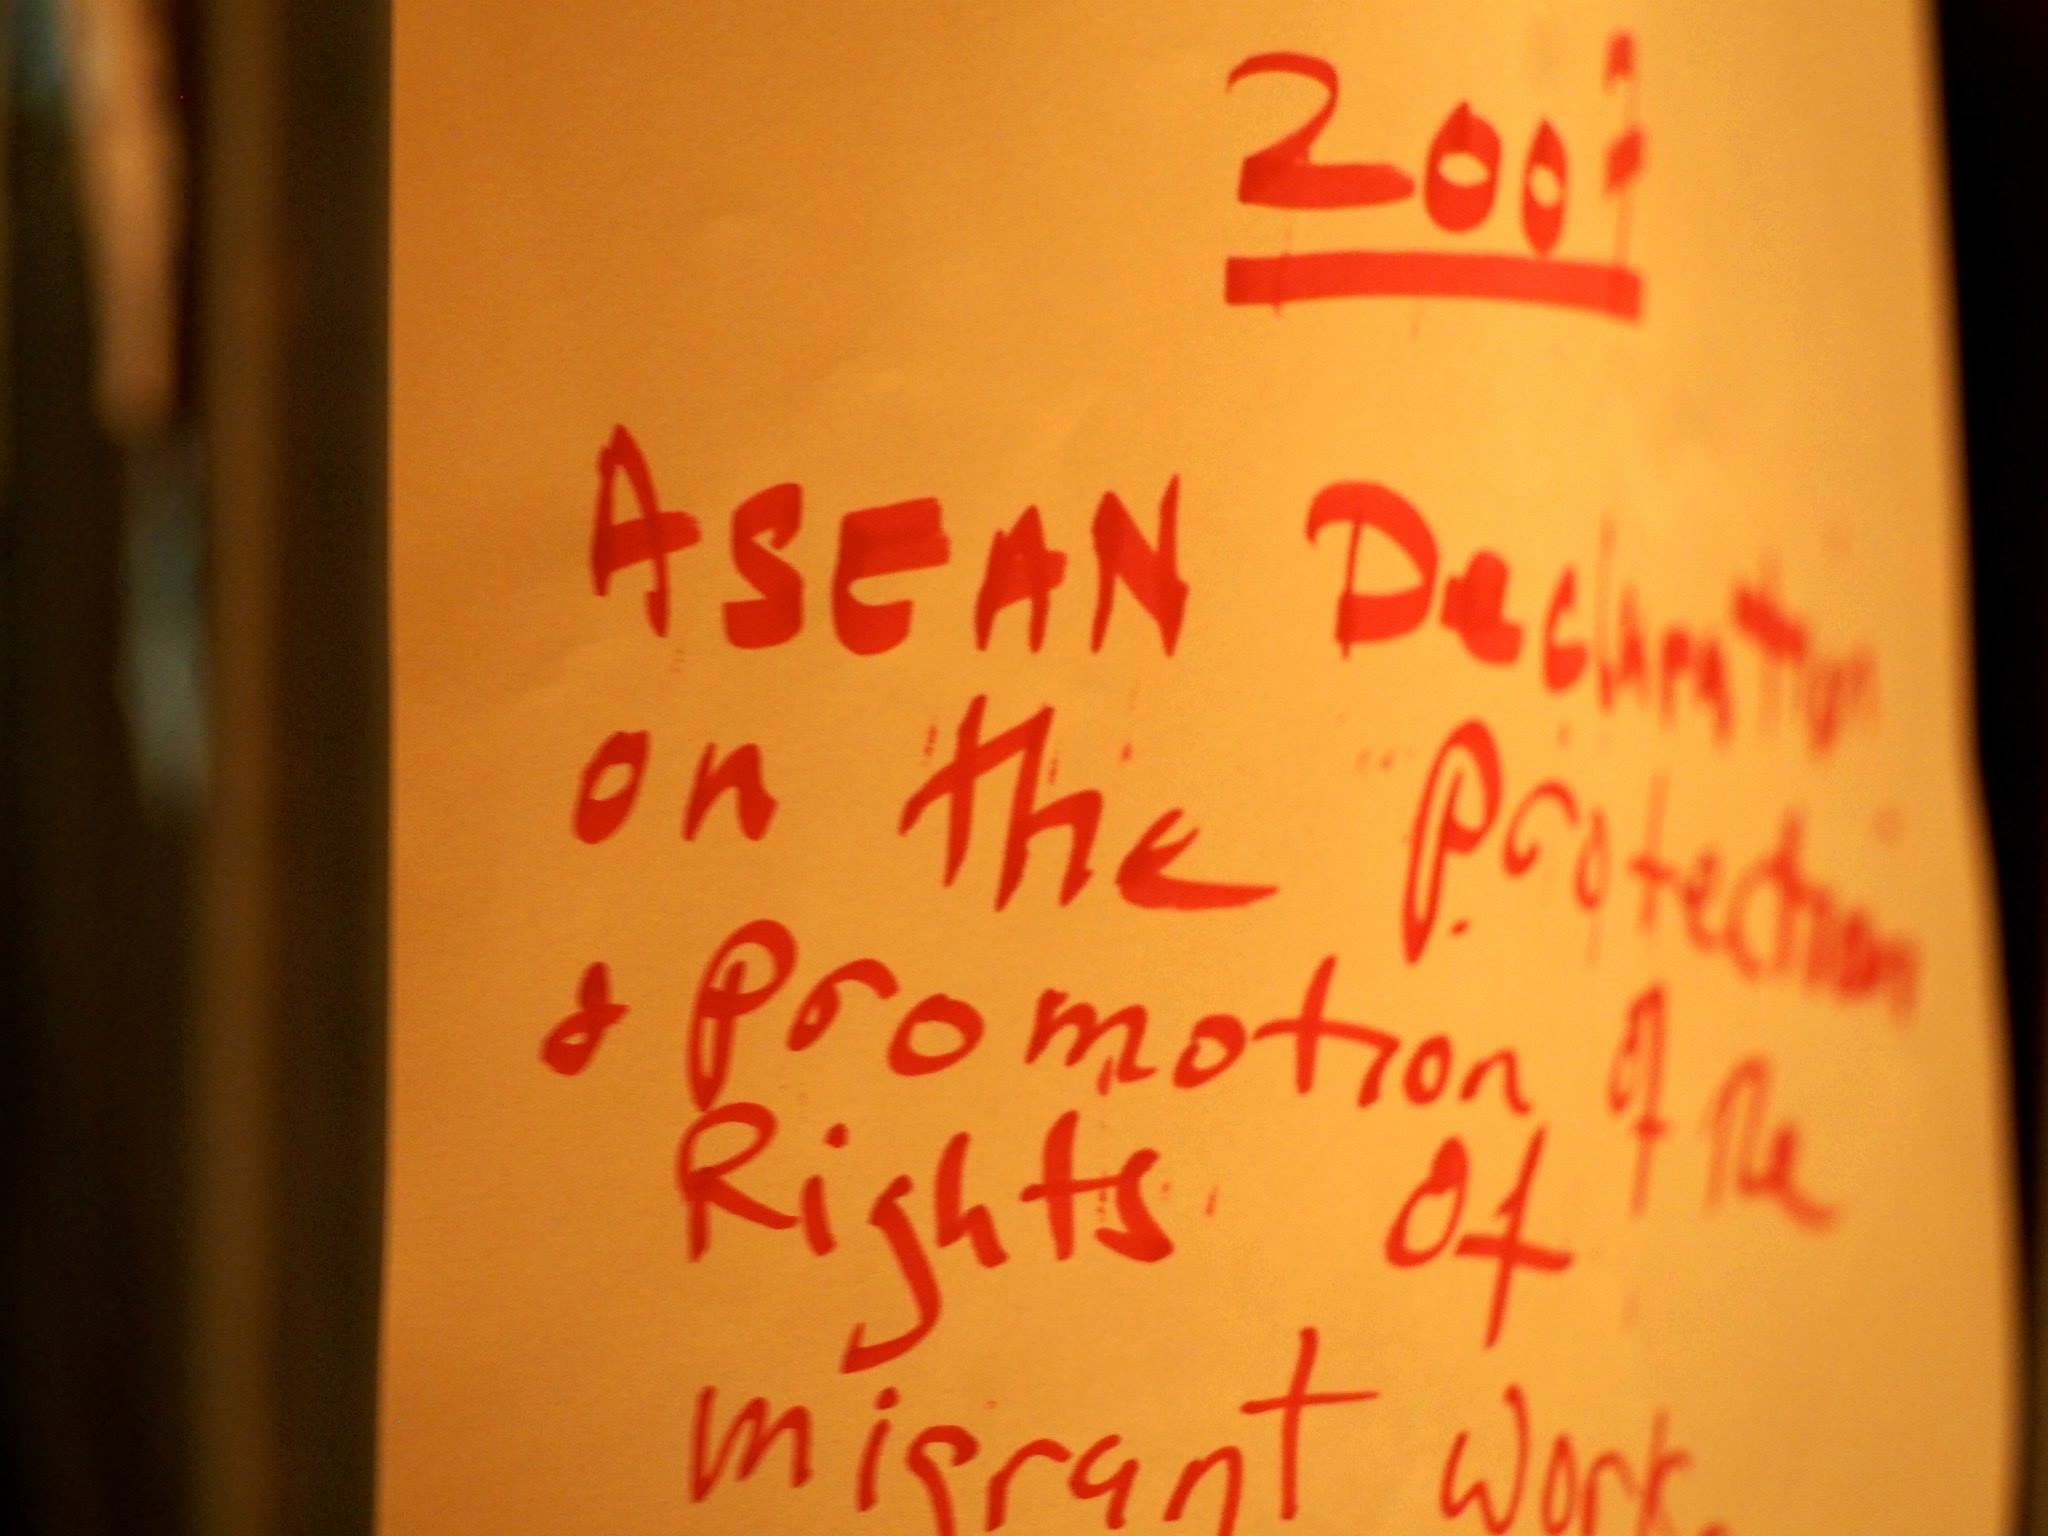 2007
ASEAN Declaration
on the Protection
& Promotion of the
Rights of
migrant work